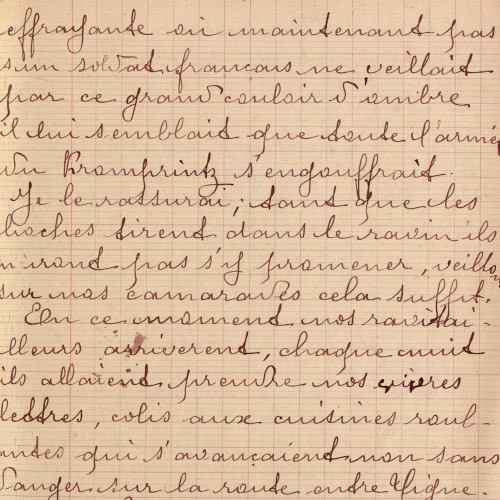 effrayante où maintenant pas
s un soldat français ne veillait
par ce grand couloir d'ombre
il lui semblait que toute l'armé
du Kromprintz s'engouffrait.
Je le rassurai; tant que les
boches tirent dans le ravin ils
n'iront pas s'y promener, veillons
sur nos camarades cela suffit.
En ce moment nos ravitai-
lleurs arrivèrent, chaque nuit
ils allaient prendre nos vivres
lettres, colis aux cuisines roul-
antes qui s'avançaient non sans
danger sur la route entre Vigne.